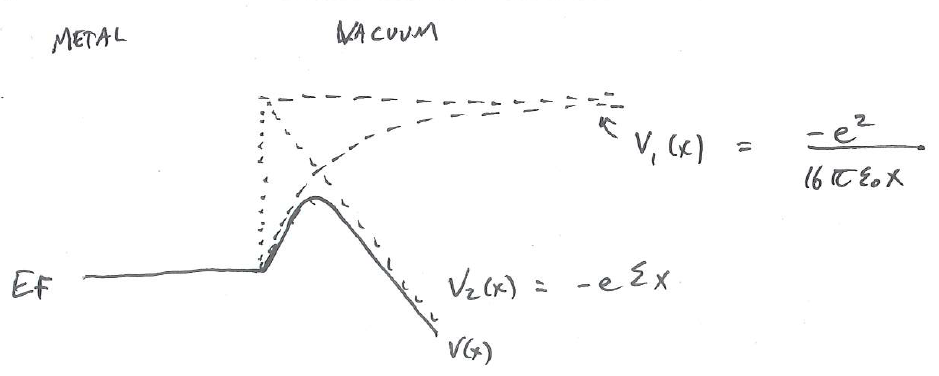 METAL
VACUUM
V₁(x) = -e² / 16πε₀x
EF
V₂(x) = -eεx
V(x)